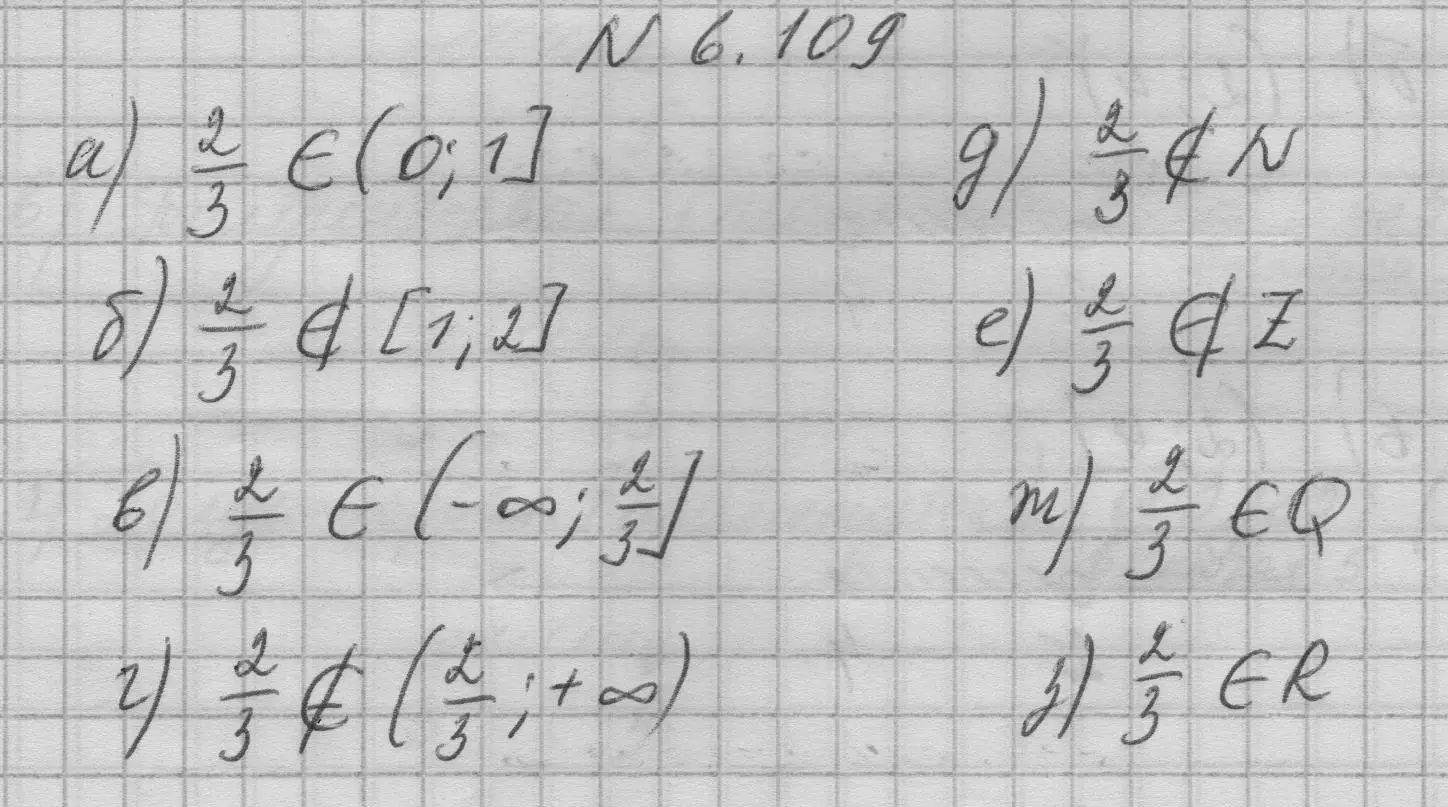 N 6.109
а) 2/3 ∈ (0; 1]
б) 2/3 ∉ [1; 2]
в) 2/3 ∈ (-∞; 2/3]
г) 2/3 ∉ (2/3; +∞)
д) 2/3 ∉ N
е) 2/3 ∉ Z
т) 2/3 ∈ Q
з) 2/3 ∈ R